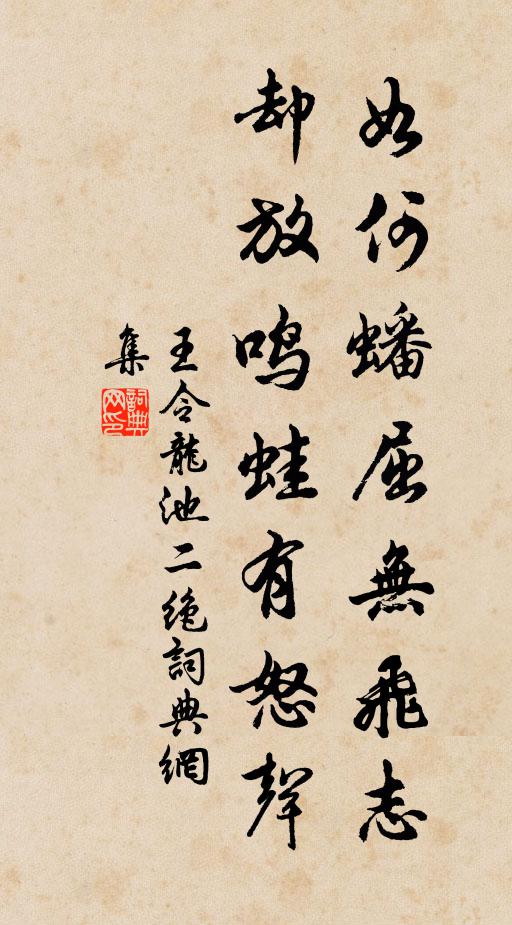 如何蟠屈無飛志
却放鳴蛙有怒聲
王令龍池二絶詞典網
集
詞典
网印